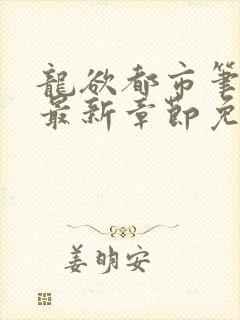 龍欲都市筆
最新章節免
姜明安